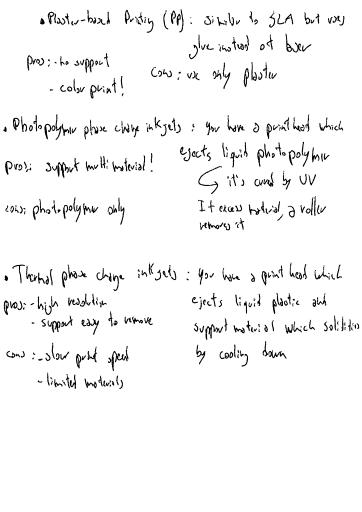 • Plaster-based Printing (PP) : similar to SLA but uses
glue instead of laser
pros: - no support
- color print!
cons : use only plaster
• Photopolymer phase change inkjets : you have a printhead which
ejects liquid photopolymer
↳ it's cured by UV
If excess material, a roller
removes it
pros: support multimaterial!
cons: photopolymer only
• Thermal phase change inkjets : you have a print head which
ejects liquid plastic and
support material which solidifies
by cooling down
pros: - high resolution
- support easy to remove
cons : - slow print speed
- limited materials